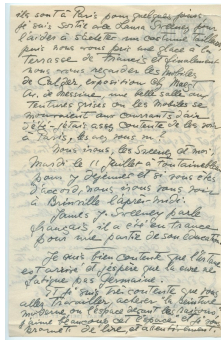 ils sont à Paris pour quelques jours
je suis sorti avec Laura Sweeney pour
l'aider à acheter un costume tailleur
puis nous avons pris une glace à la
Terrasse de Francis et finalement
nous avons regardé les mobiles
de Calder, exposition chez Maeght
Av. de Messine, une belle salle aux
Tentures grises ou les mobiles se
mouvaient aux courants d'air
d'été. J'étais assez contente de les voir
à Paris.
Nous irons, les Sweeney et moi
Mardi le 11 juillet à Fontainebleau
pour y déjeuner et si vous êtes
d'accord, nous irons vous voir
à Brinville l'après-midi.
James J. Sweeney parle
français, il a été en France
pour une partie de son éducation.
Je suis bien contente que
est arrivé et j'espère que la cure ne
fatigue pas Germaine.
Et je suis très contente que vous
allez travailler, acheter la peinture
moderne, un espace devant les maisons
j'aime beaucoup cet espace et le
de livre, et